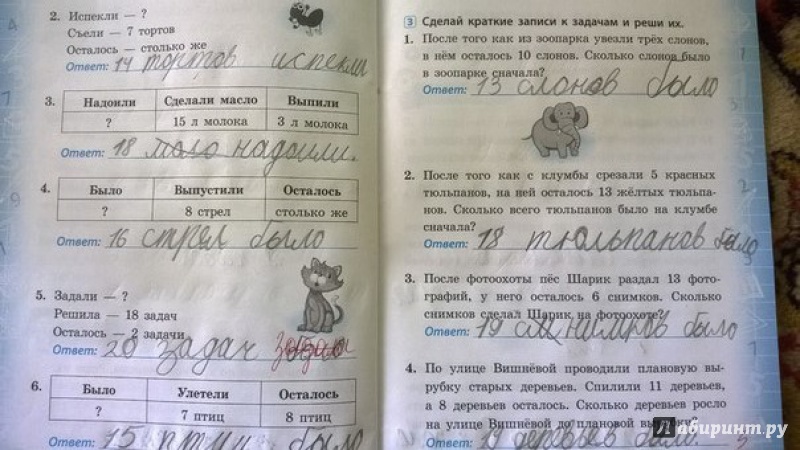 2. Испекли — ?
Съели — 7 тортов
Осталось — столько же
Ответ: 14 тортов испекли
3.
Надоили Сделали масло Выпили
? 15 л молока 3 л молока
Ответ: 18 надоили.
4.
Было Выпустили Осталось
? 8 стрел столько же
Ответ: 16 стрел было
5. Задали — ?
Решила — 18 задач
Осталось — 2 задачи
Ответ: 20 задач
6.
Было Улетели Осталось
? 7 птиц 8 птиц
Ответ: 15 птиц было
3 Сделай краткие записи к задачам и реши их.
1. После того как из зоопарка увезли трёх слонов,
в нём осталось 10 слонов. Сколько слонов было
в зоопарке сначала?
Ответ: 13 слонов было
2. После того как с клумбы срезали 5 красных
тюльпанов, на ней осталось 13 жёлтых тюльпа-
нов. Сколько всего тюльпанов было на клумбе
сначала?
Ответ: 18 тюльпанов было
3. После фотоохоты пёс Шарик раздал 13 фото-
графий, у него осталось 6 снимков. Сколько
снимков сделал Шарик на фотоохоте?
Ответ: 19 было
4. По улице Вишнёвой проводили плановую вы-
рубку старых деревьев. Спилили 11 деревьев,
а 8 деревьев осталось. Сколько деревьев росло
на улице Вишнёвой до плановой
Ответ: 19 деревьев было.
Лабиринт.ру